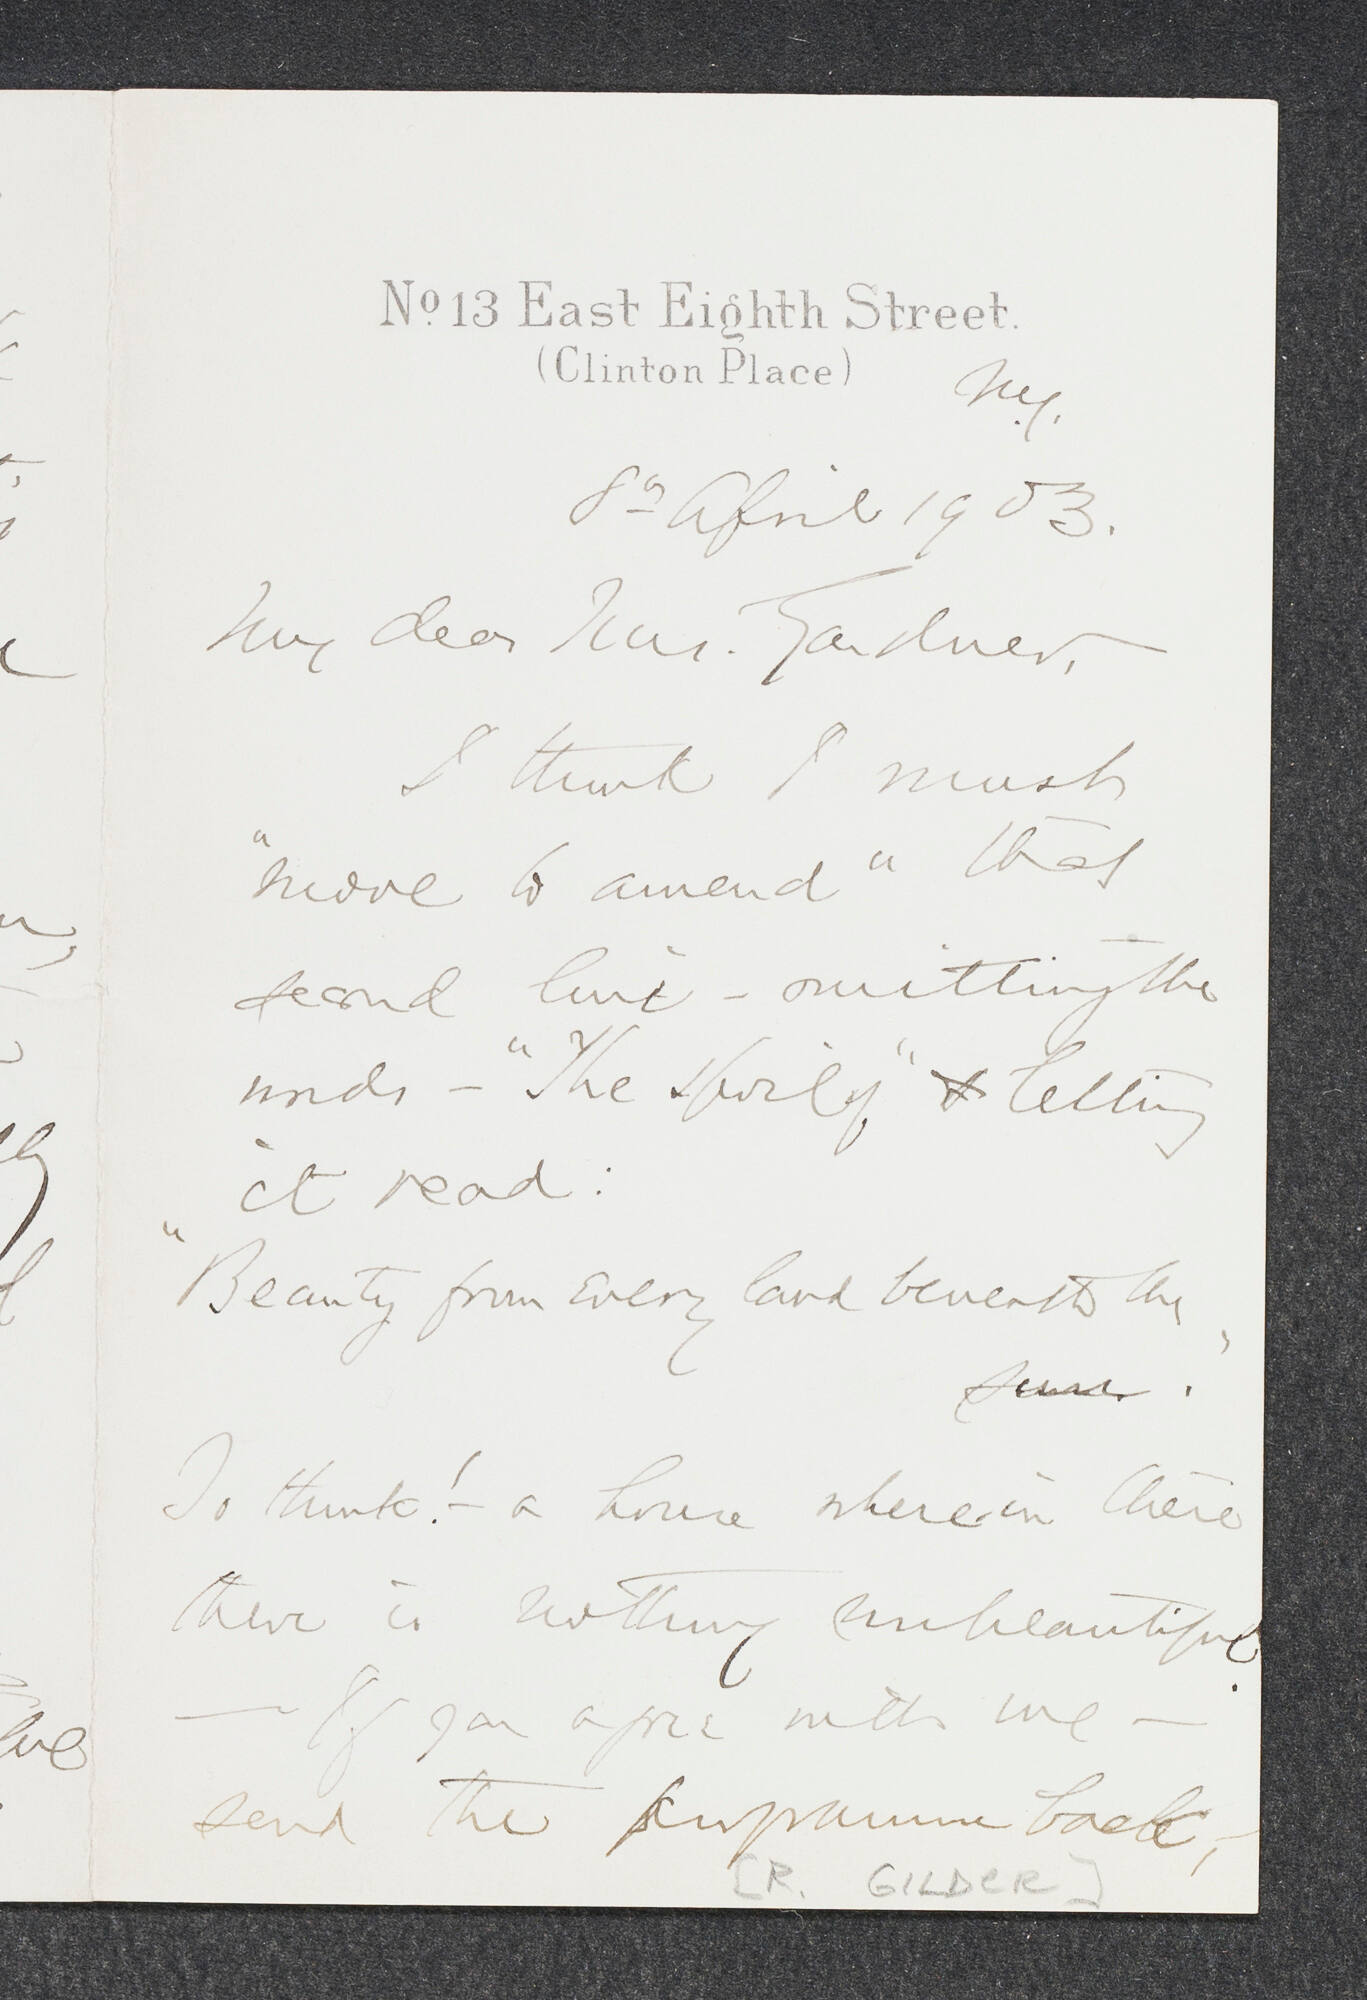 No. 13 East Eighth Street.
(Clinton Place)
N.Y.
8th April 1903.
My dear Mrs. Gardner, —
I think I must
"move to amend" that
second line - omitting the
words - "The spoil of" & letting
it read:
"Beauty from every land beneath the
sun."
To think! - a house wherein there
there is nothing unbeautiful.
— If you agree with me —
send the programme back, -
[R. GILDER]